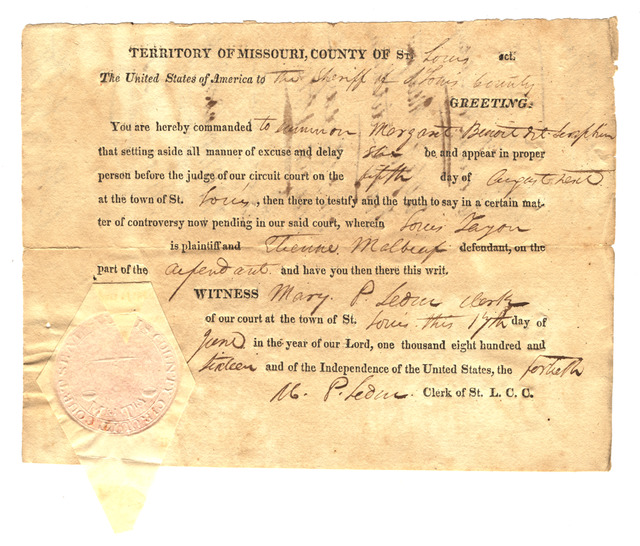 TERRITORY OF MISSOURI, COUNTY OF St. Louis sct.
The United States of America to the Sheriff of St Louis County
GREETING:
You are hereby commanded to summon Margaret Benoit
that setting aside all manner of excuse and delay she be and appear in proper
person before the judge of our circuit court on the fifth day of August next
at the town of St. Louis, then there to testify and the truth to say in a certain mat-
ter of controversy now pending in our said court, wherein Louis Tayon
is plaintiff and Etienne Malbeuf defendant, on the
part of the defendant and have you then there this writ.
WITNESS Mary P. Leduc clerk
of our court at the town of St. Louis this 17th day of
June in the year of our Lord, one thousand eight hundred and
sixteen and of the Independence of the United States, the fortieth
M. P. Leduc Clerk of St. L. C. C.